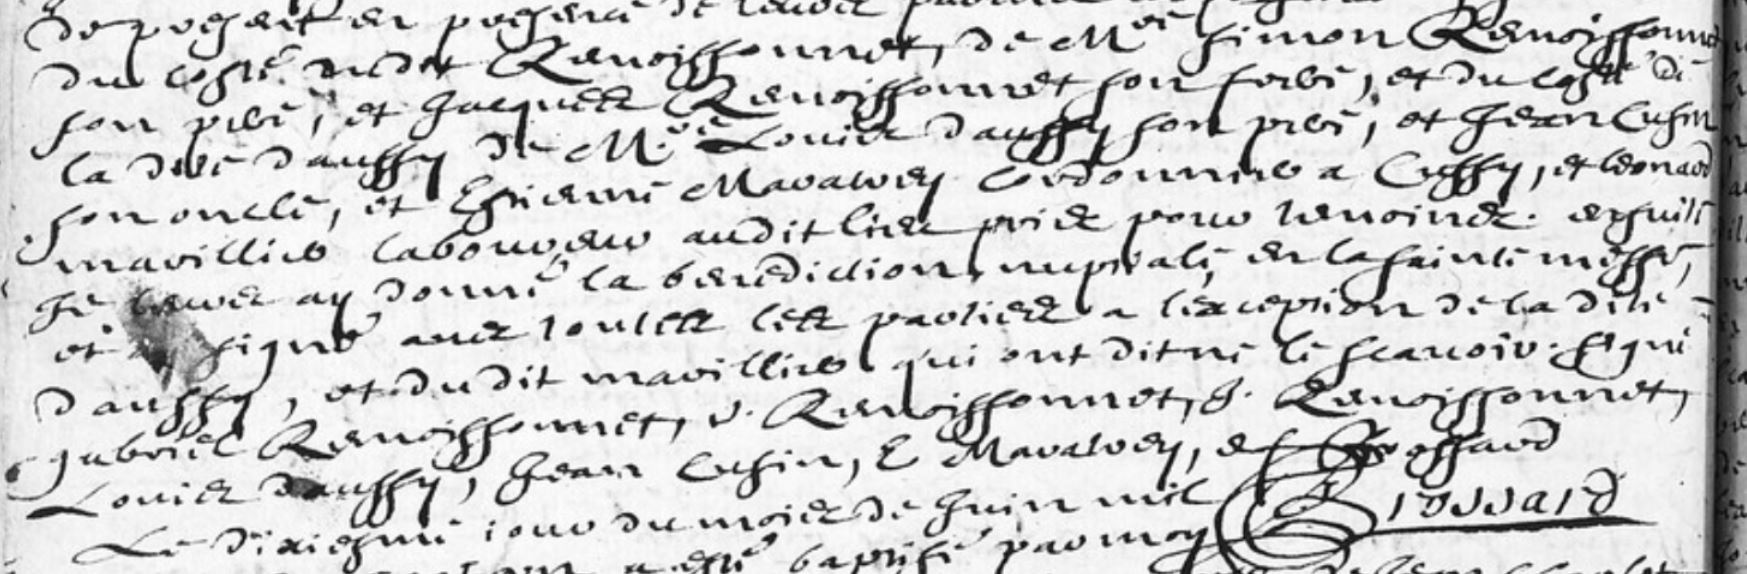 du costé dudit Renoissonnet, de Mre Simon Renoissonnet
son pere, et Jacques Renoissonnet son frere, et du costé de
la dite d'aussy de Mre Louis d'aussy son pere, et Jean Cusin
son oncle, et Estienne Maratrey Cordonnier a Cussy, et Leonard
marillier laboureur audit lieu pris pour tesmoins. ensuite
Je leur ay donné la benediction nuptiale, en la sainte messe,
et signé avec toutes les parties a l'exception de la dite
d'aussy, et dudit marillier qui ont dit ne le scavoir. Signé
gabriel Renoissonnet, S. Renoissonnet, J. Renoissonnet,
Louis d'aussy, Jean Cusin, E Maratrey, et Brossard
Brossard
Le dixiesme jour du mois de Juin mil
a esté baptisé par moy